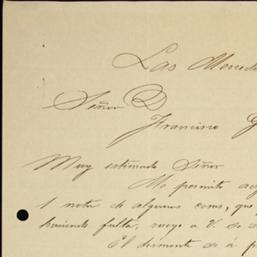 Las Merced
Señor D
Francisco G
Muy estimado Señor
Me permito adj
1 nota de algunas cosas, que
haciendo falta, ruego a V. de
El dismonte de á p